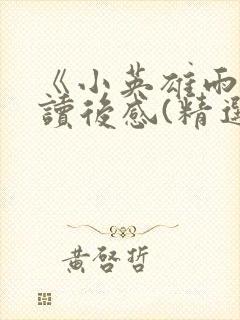 《小英雄雨
讀後感(精選
黃啓哲